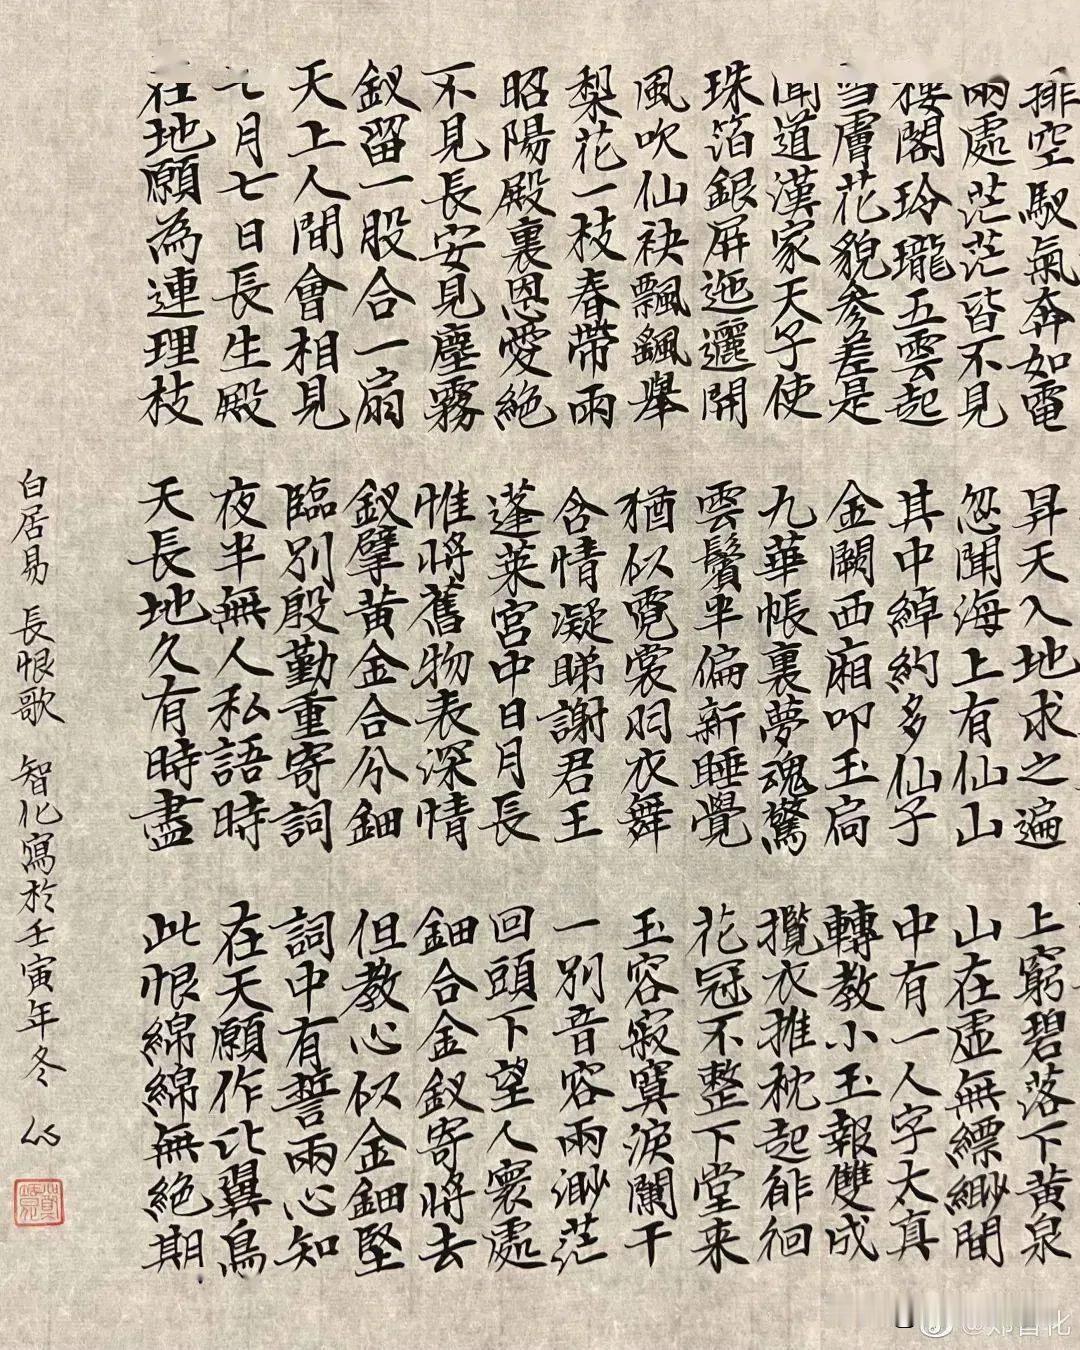 排空馭氣奔如電 昇天入地求之遍 上窮碧落下黃泉
兩處茫茫皆不見 忽聞海上有仙山 山在虛無縹緲間
樓閣玲瓏五雲起 其中綽約多仙子 中有一人字太真
雪膚花貌參差是 金闕西廂叩玉扃 轉教小玉報雙成
聞道漢家天子使 九華帳裏夢魂驚 攬衣推枕起徘徊
珠箔銀屏迤邐開 雲鬢半偏新睡覺 花冠不整下堂来
風吹仙袂飄颻舉 猶似霓裳羽衣舞 玉容寂寞淚闌干
梨花一枝春帶雨 含情凝睇謝君王 一別音容兩渺茫
昭陽殿裏恩愛絕 蓬萊宮中日月長 回頭下望人寰處
不見長安見塵霧 惟將舊物表深情 鈿合金釵寄將去
釵留一股合一扇 釵擘黃金合分鈿 但教心似金鈿堅
天上人間會相見 臨別殷勤重寄詞 詞中有誓兩心知
七月七日長生殿 夜半無人私語時 在天願作比翼鳥
在地願為連理枝 天長地久有時盡 此恨綿綿無絕期
白居易 長恨歌 智化寫於壬寅年冬
@郑智化